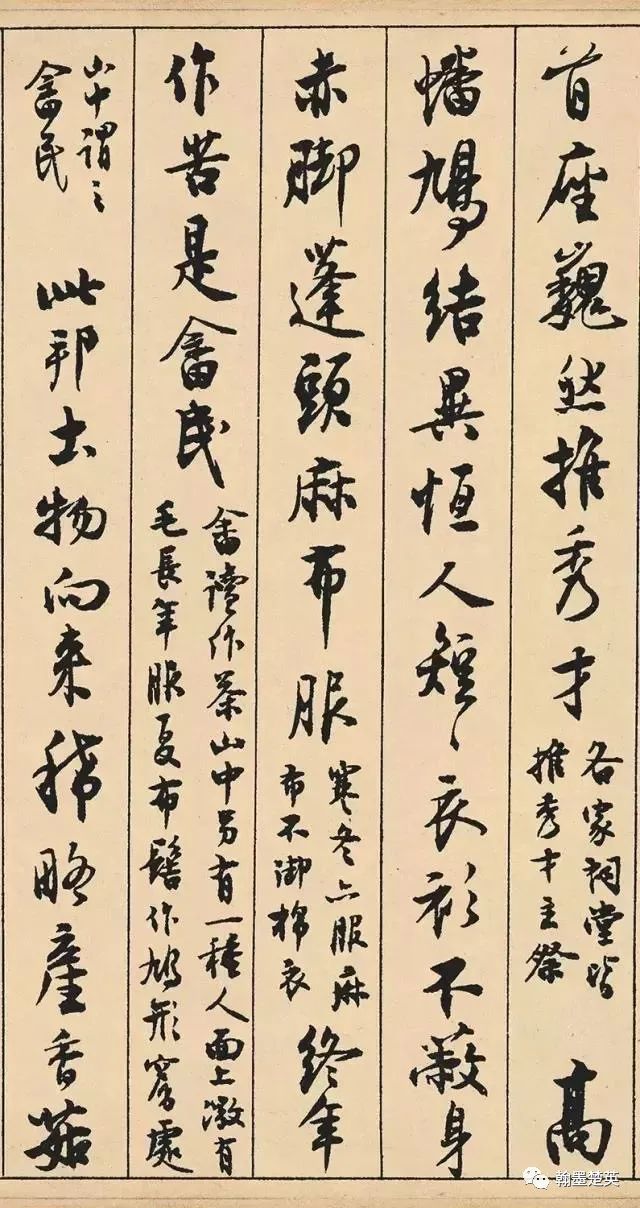 首座巍然推秀才
各家祠堂皆
推秀才主祭
高
蟠鳩結異恒人短々衣衫不蔽身
赤脚蓬頭麻布服
寒冬亦服麻
布不御棉衣
終年
作苦是畬民
畬讀作茶山中另有一種人面上微有
毛長年服夏布髻作鳩形窮處
山中謂之
畬民
此邦土物向来稀略產香菇
翰墨楚英